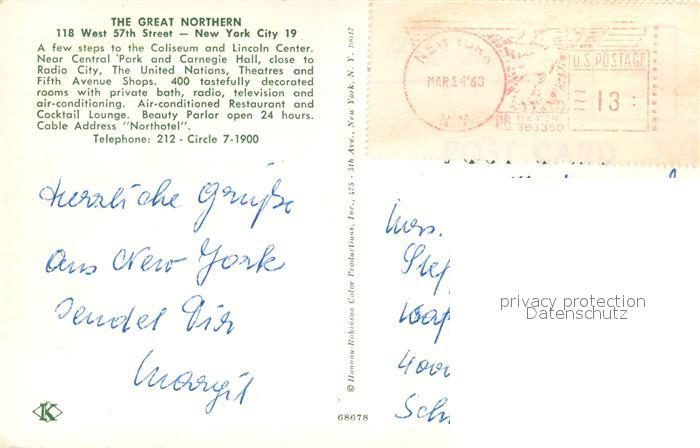 THE GREAT NORTHERN
118 West 57th Street — New York City 19
A few steps to the Coliseum and Lincoln Center.
Near Central Park and Carnegie Hall, close to
Radio City, The United Nations, Theatres and
Fifth Avenue Shops. 400 tastefully decorated
rooms with private bath, radio, television and
air-conditioning. Air-conditioned Restaurant and
Cocktail Lounge. Beauty Parlor open 24 hours.
Cable Address "Northotel".
Telephone: 212 - Circle 7-1900
Herzliche Grüße
aus New York
sendet Dir
Margit
K
© Hannau-Robinson Color Productions, Inc., 475 - 5th Ave., New York, N. Y. 10017
68678
NEW YORK
MAR 14 '63
N.Y.
U.S. POSTAGE
13
PB METER
393350
POST CARD
Mrs.
Stef
400
Sch
privacy protection
Datenschutz